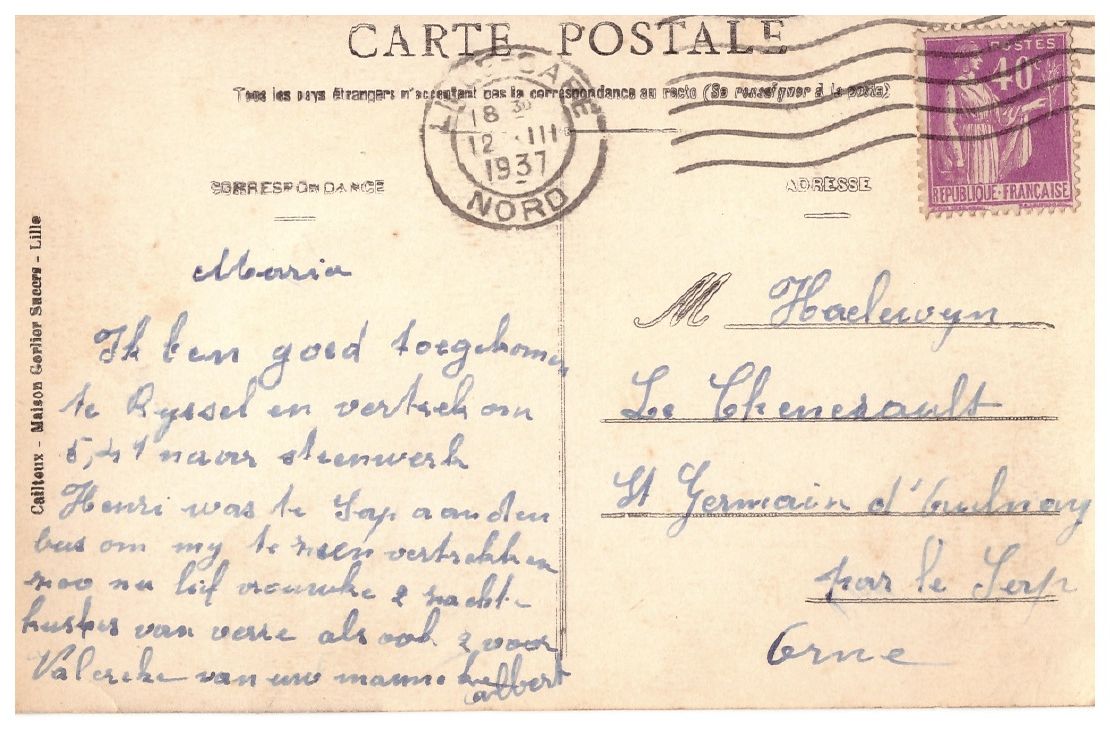 CARTE POSTALE
Tous les pays étrangers n'acceptent pas la correspondance au recto (Se renseigner à la poste)
LILLE-GARE
18 30
12 III
1937
NORD
POSTES
40 c
REPUBLIQUE-FRANÇAISE
CORRESPONDANCE
ADRESSE
Cailteux - Maison Gorlier Succrs - Lille
Maria
Ik ben goed toegekomen
te Ryssel en vertrek om
5,41 naar steenwerk
Henri was te Sap aan den
bus om my te zien vertrekken
zoo nu lief vrouwke 2 zachte
kusjes van verre als ook 2 voor
Valereke van uw manneke
albert
M Haelewyn
Le Chenesault
St Germain d'Aulnay
par le Sap
Orne